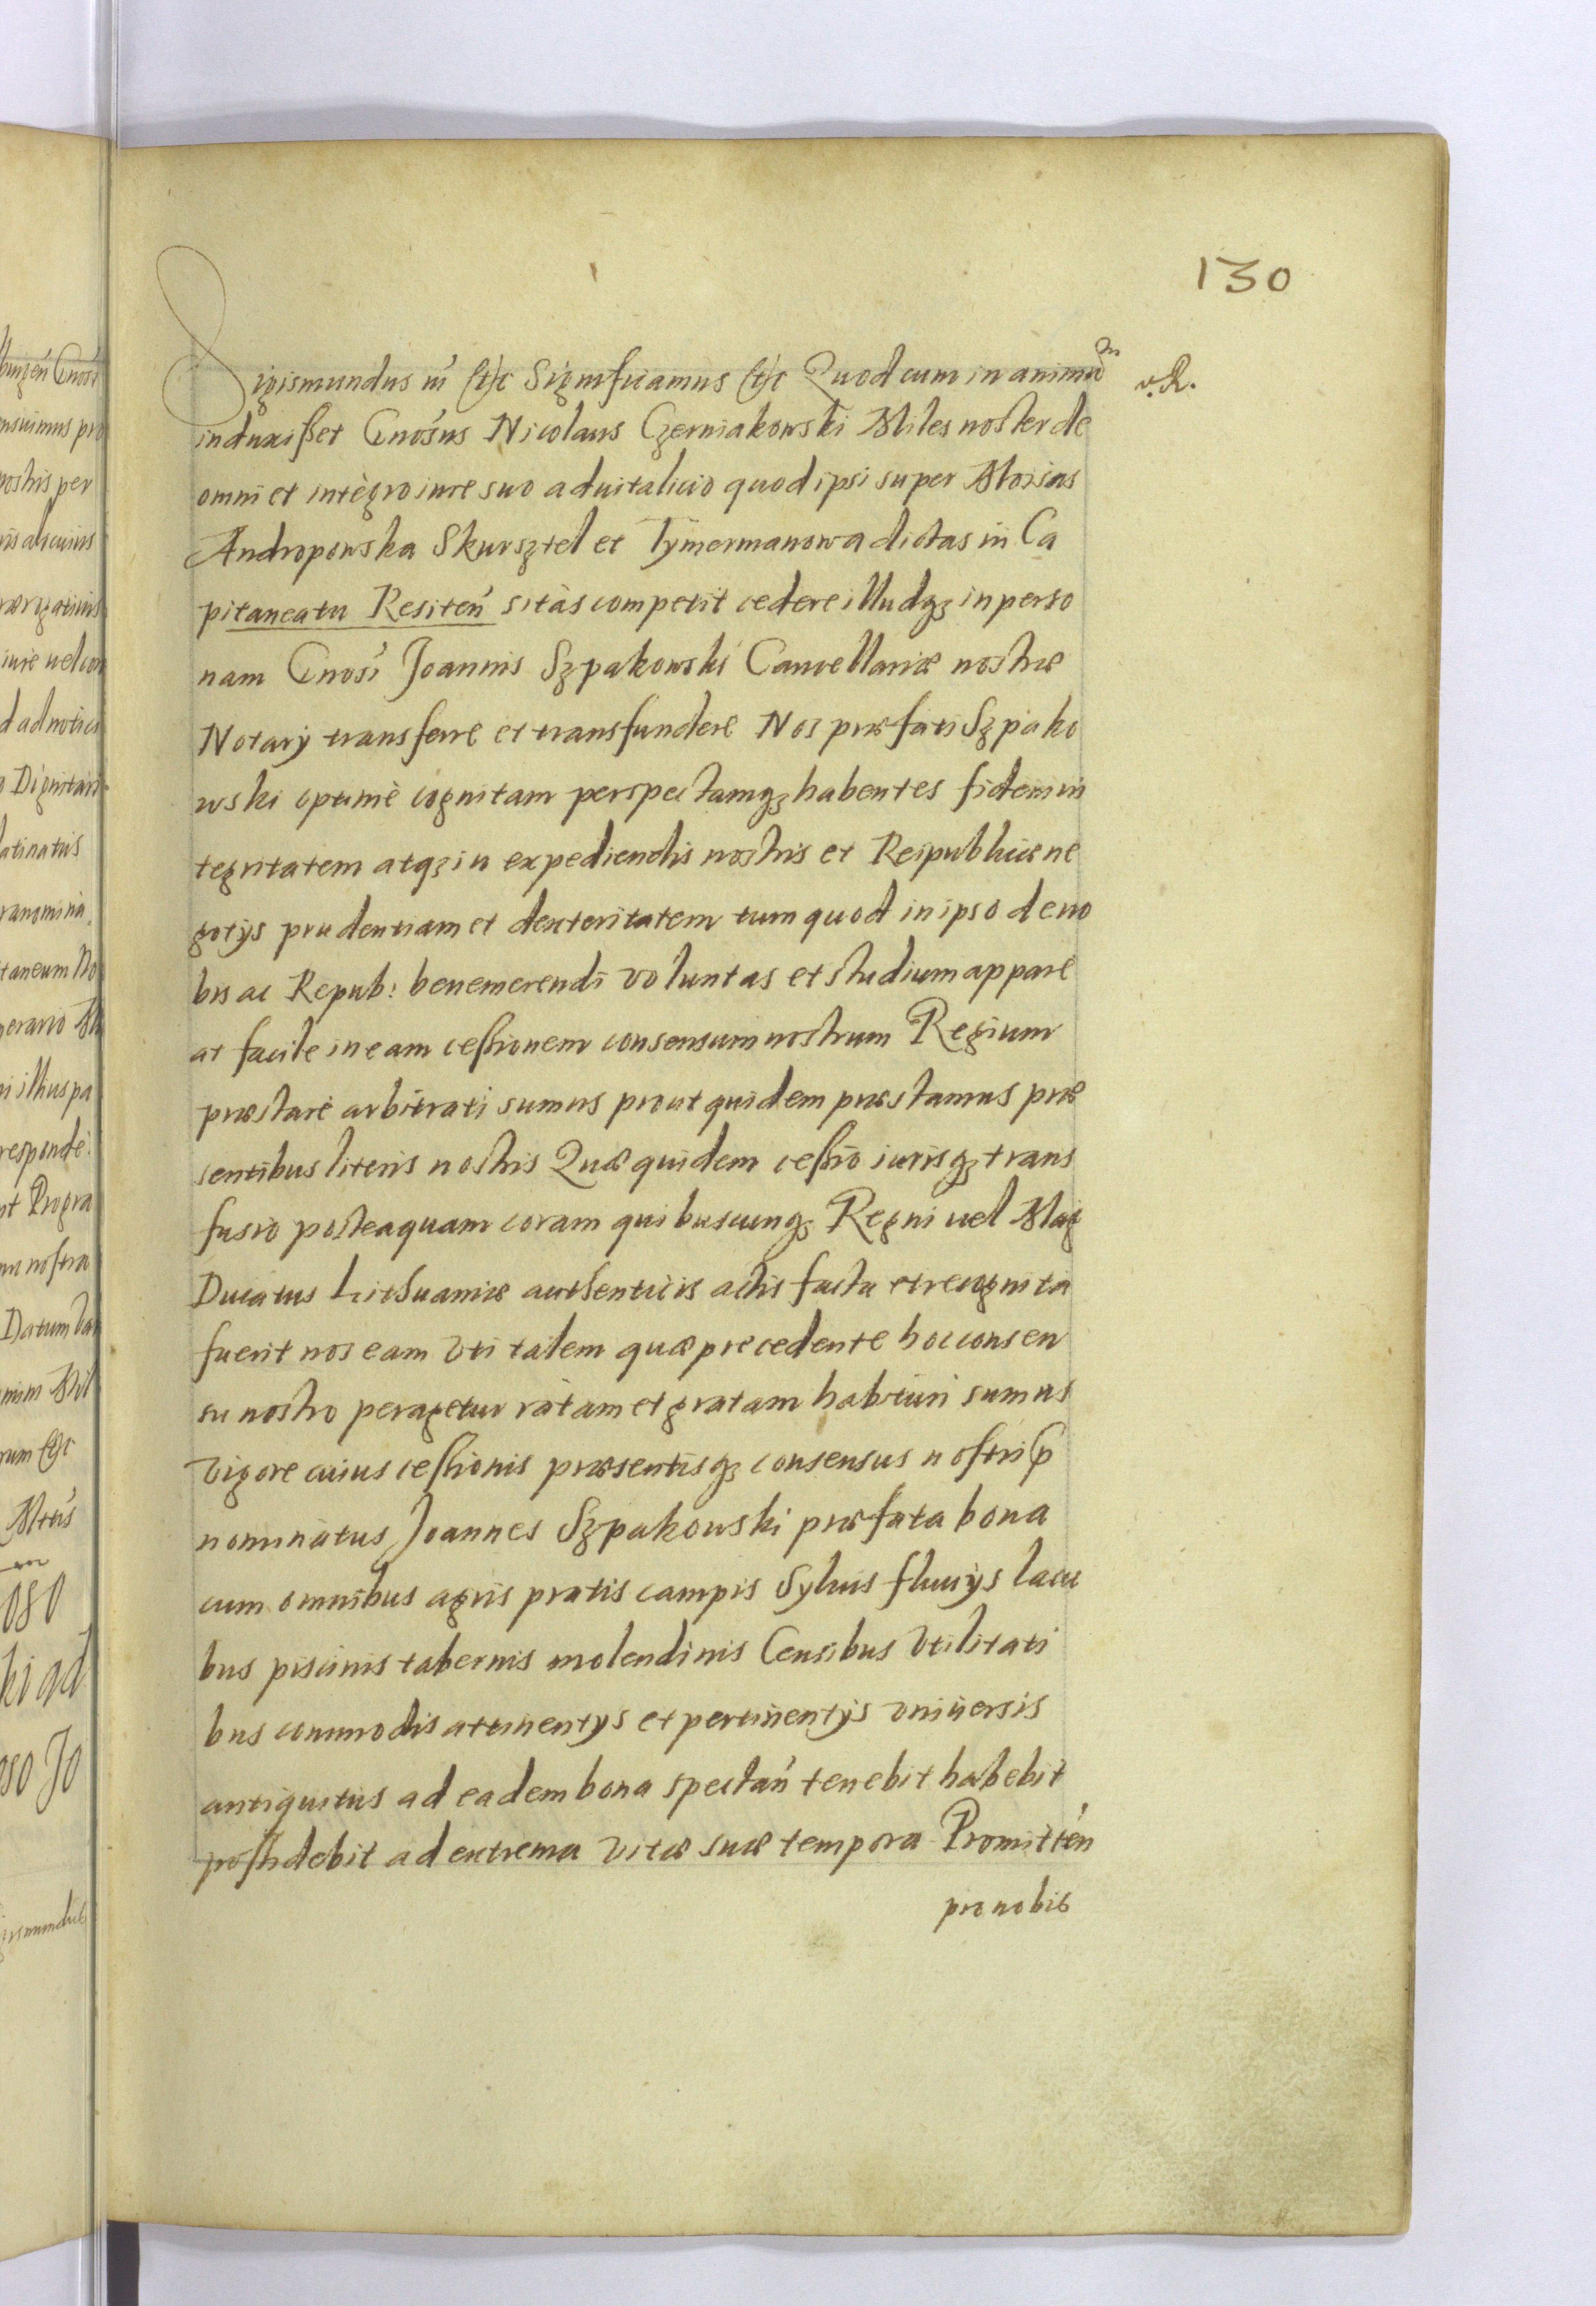 130
Sigismundus III etc Significamus etc Quod cum in animum
v. R.
induxisset Gnosus Nicolaus Czerniakowski Miles noster de
omni et integro iure suo aduitalicio quod ipsi super Moisas
Andropowska Skursztel et Tymermanowa dictas in Ca
pitaneatu Resiten sitas competit cedere illudqz in perso
nam Gnosi Joannis Szpakowski Cancellariæ nostræ
Notarij transferre et transfundere Nos præfati Szpako
wski optimè cognitam perspectamqz habentes fidem in
tegritatem atqz in expediendis nostris et Reipublicæ ne
gotijs prudentiam et dexteritatem tum quod in ipso de no
bis ac Repub: benemerendi voluntas et studium appare
at facile in eam cessionem consensum nostrum Regium
præstare arbitrati sumus prout quidem præstamus præ
sentibus literis nostris Quæ quidem cessio iurisqz trans
fusio posteaquam coram quibuscunqz Regni uel Mag
Ducatus Lithuaniæ authenticis actis facta et recognita
fuerit nos eam vti talem quæ precedente hoc consen
su nostro peragetur ratam et gratam habituri sumus
Vigore cuius cessionis præsentisqz consensus nostri p
nominatus Joannes Szpakowski præfata bona
cum omnibus agris pratis campis Syluis fluuijs lacu
bus piscinis tabernis molendinis Censibus Vtilitati
bus commodis attinentijs et pertinentijs vniuersis
antiquitus ad eadem bona spectan tenebit habebit
possidebit ad extrema vitæ suæ tempora Promitten
pro nobis